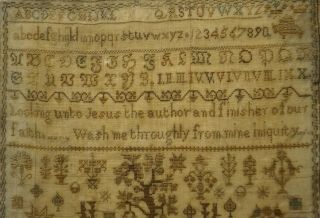 ABCDEFGHIJKL QRSTUVWXYZ
abcdefghijklmnopqrstuvwxyz 1234567890
ABCDEFGHIJKLMNOP
STUVWXYZ I II III IV V VI VII VIII IX X
Looking unto Jesus the author and finisher of our
faith Wash me throughly from mine iniquity